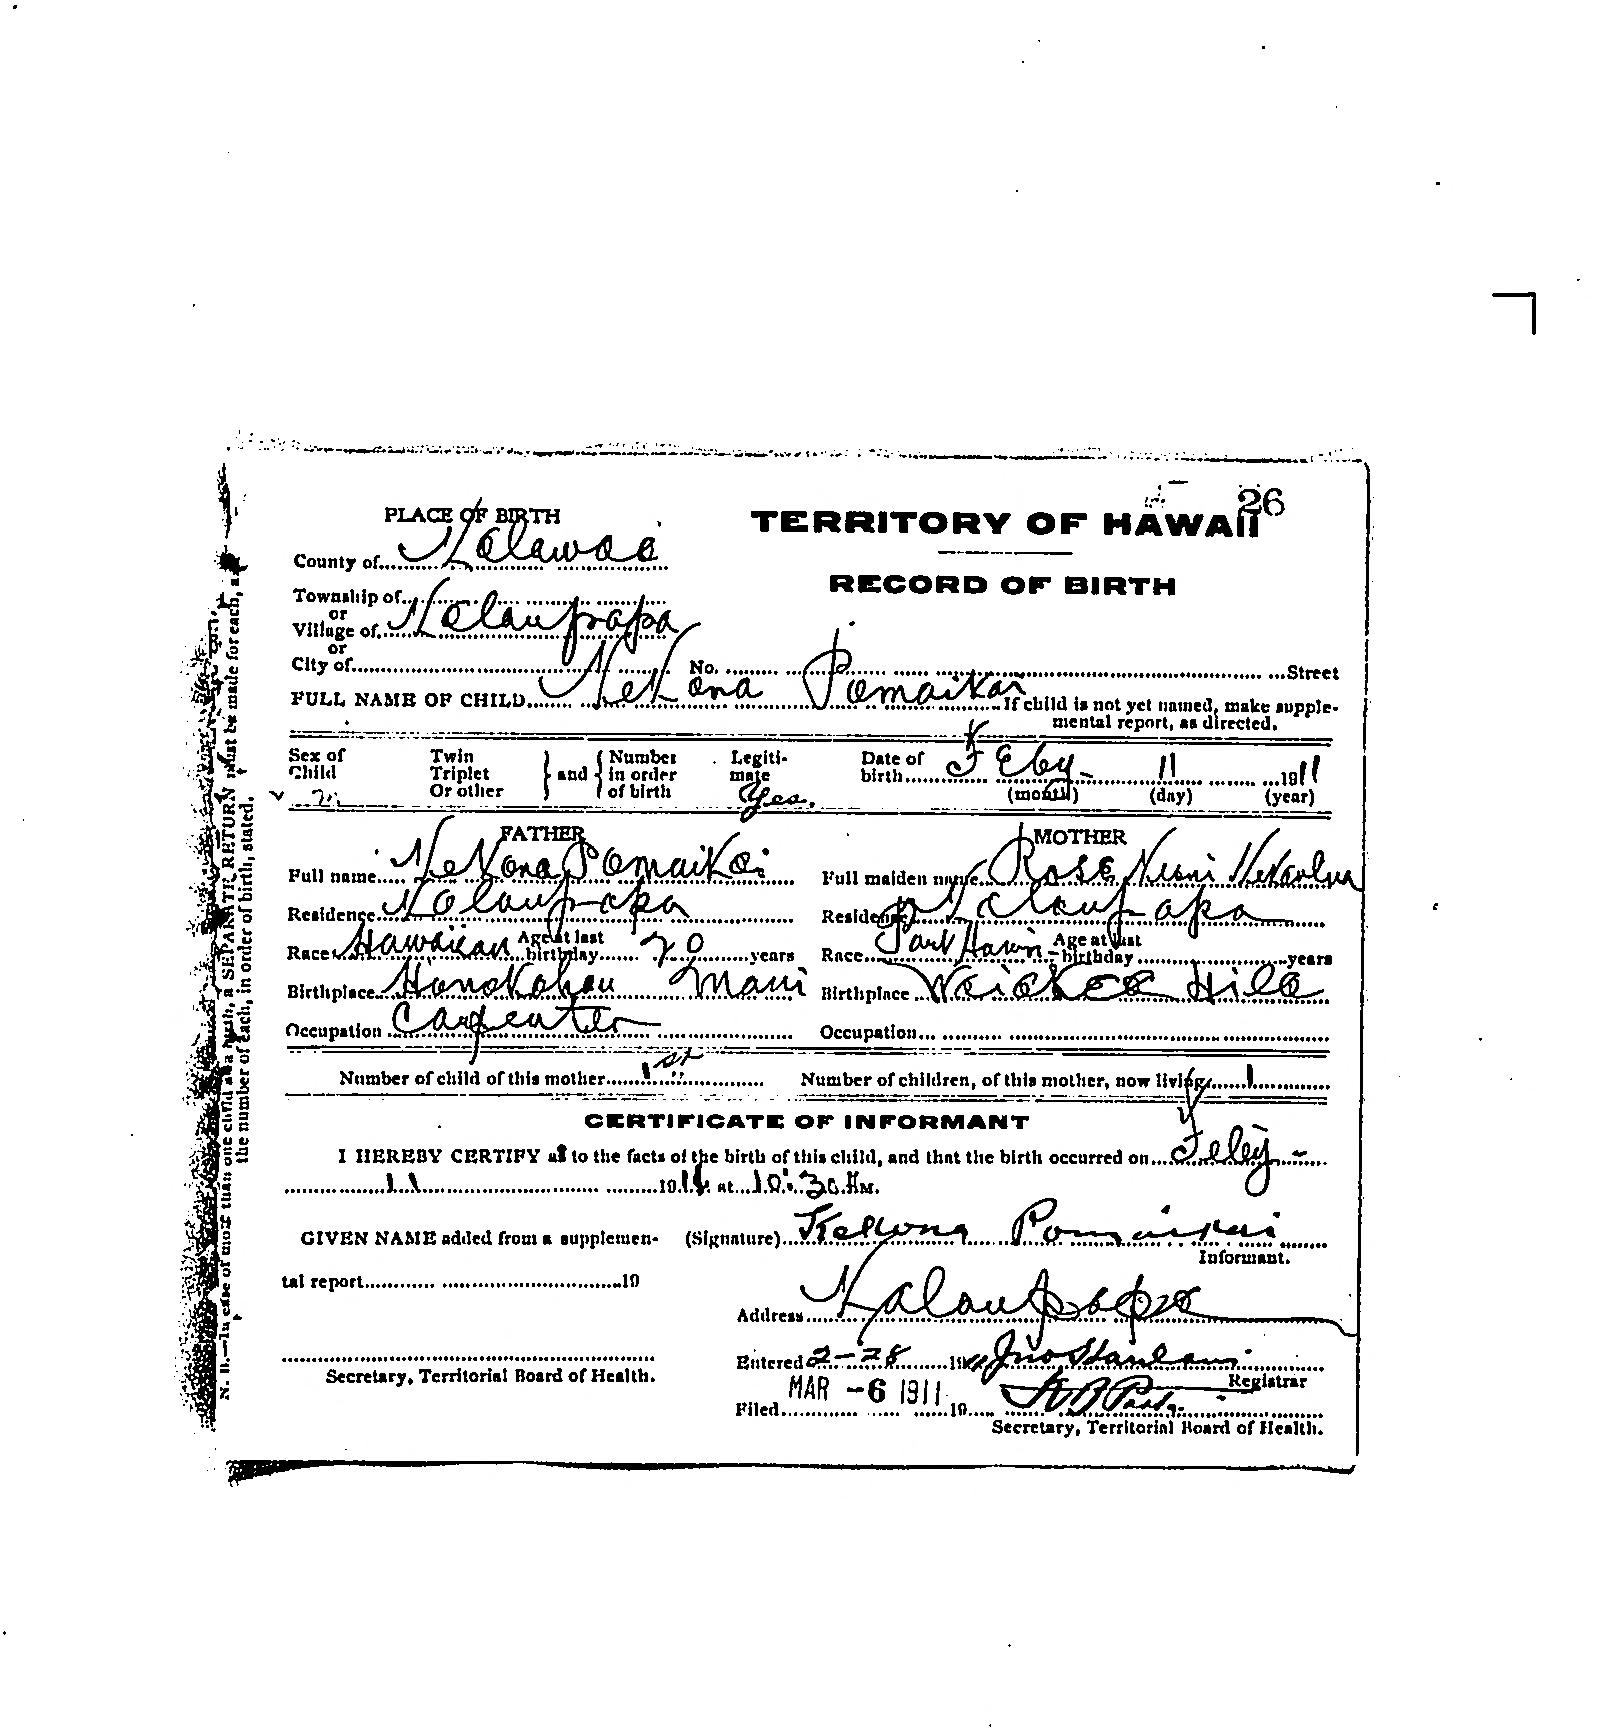 26
PLACE OF BIRTH
TERRITORY OF HAWAII
County of Kalawao
RECORD OF BIRTH
Township of
or
Village of Kalaupapa
or
City of No. Street
FULL NAME OF CHILD Kekona Pomaikai If child is not yet named, make supple-
mental report, as directed.
Sex of Child m
Twin Triplet Or other
and
Number in order of birth
Legiti-
mate Yes.
Date of birth Feby- 11 1911
(month) (day) (year)
FATHER
Full name Kekona Pomaikai
Residence Kalaupapa
Race Hawaiian Age at last birthday 20 years
Birthplace Honokohau Maui
Occupation Carpenter
MOTHER
Full maiden name Rose
Residence Kalaupapa
Race Part Hawn- Age at last birthday years
Birthplace Hilo
Occupation
Number of child of this mother 1st
Number of children, of this mother, now living 1
CERTIFICATE OF INFORMANT
I HEREBY CERTIFY as to the facts of the birth of this child, and that the birth occurred on Feby-
11 1911 at 10:30 M.
GIVEN NAME added from a supplemen-
tal report 19
Secretary, Territorial Board of Health.
(Signature) Kekona Pomaikai
Informant.
Address Kalaupapa
Entered 2-28 1911 Jno
Registrar
Filed MAR -6 1911 19
Secretary, Territorial Board of Health.
N. B.—In case of more than one child at a birth, a SEPARATE RETURN must be made for each, and
the number of each, in order of birth, stated.